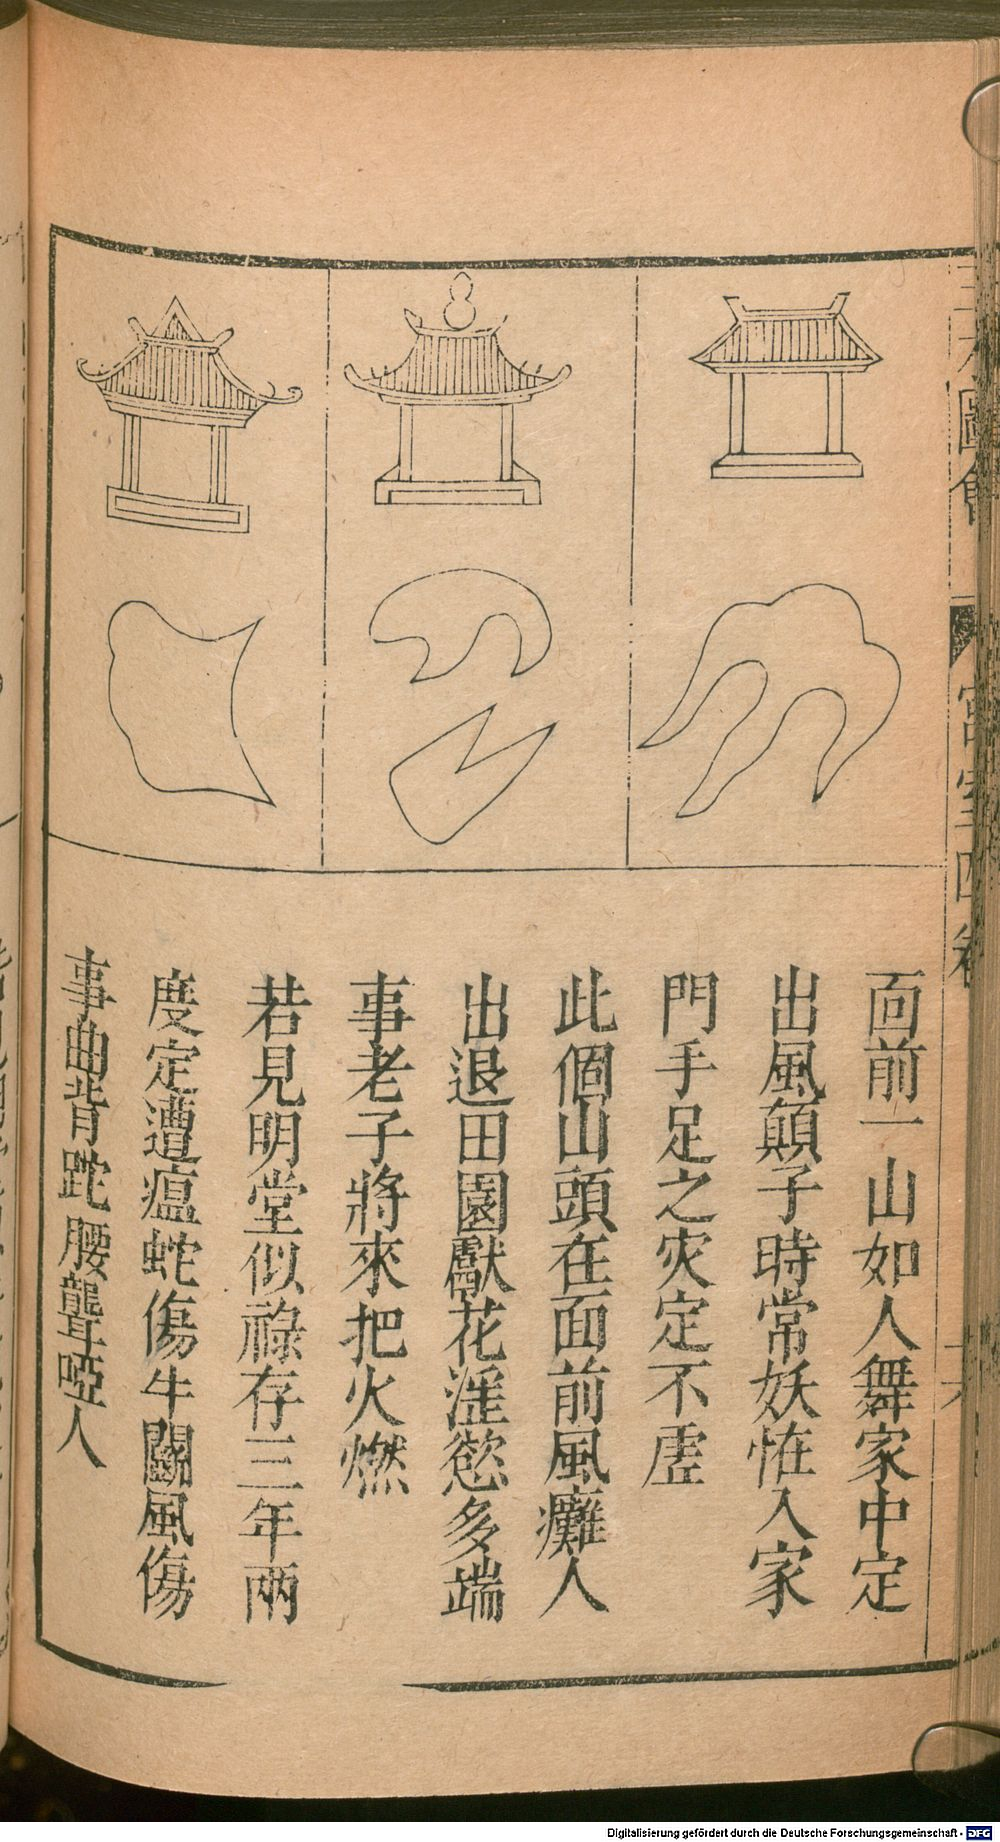 面前一山如人舞家中定
出風顛子時常妖怪入家
門手足之灾定不虗
此個山頭在面前風癱人
出退田園獻花淫慾多端
事老子將來把火燃
若見明堂似祿存三年兩
度定遭瘟蛇傷牛鬬風傷
事曲背跎腰聾啞人
Digitalisierung gefördert durch die Deutsche Forschungsgemeinschaft - DFG